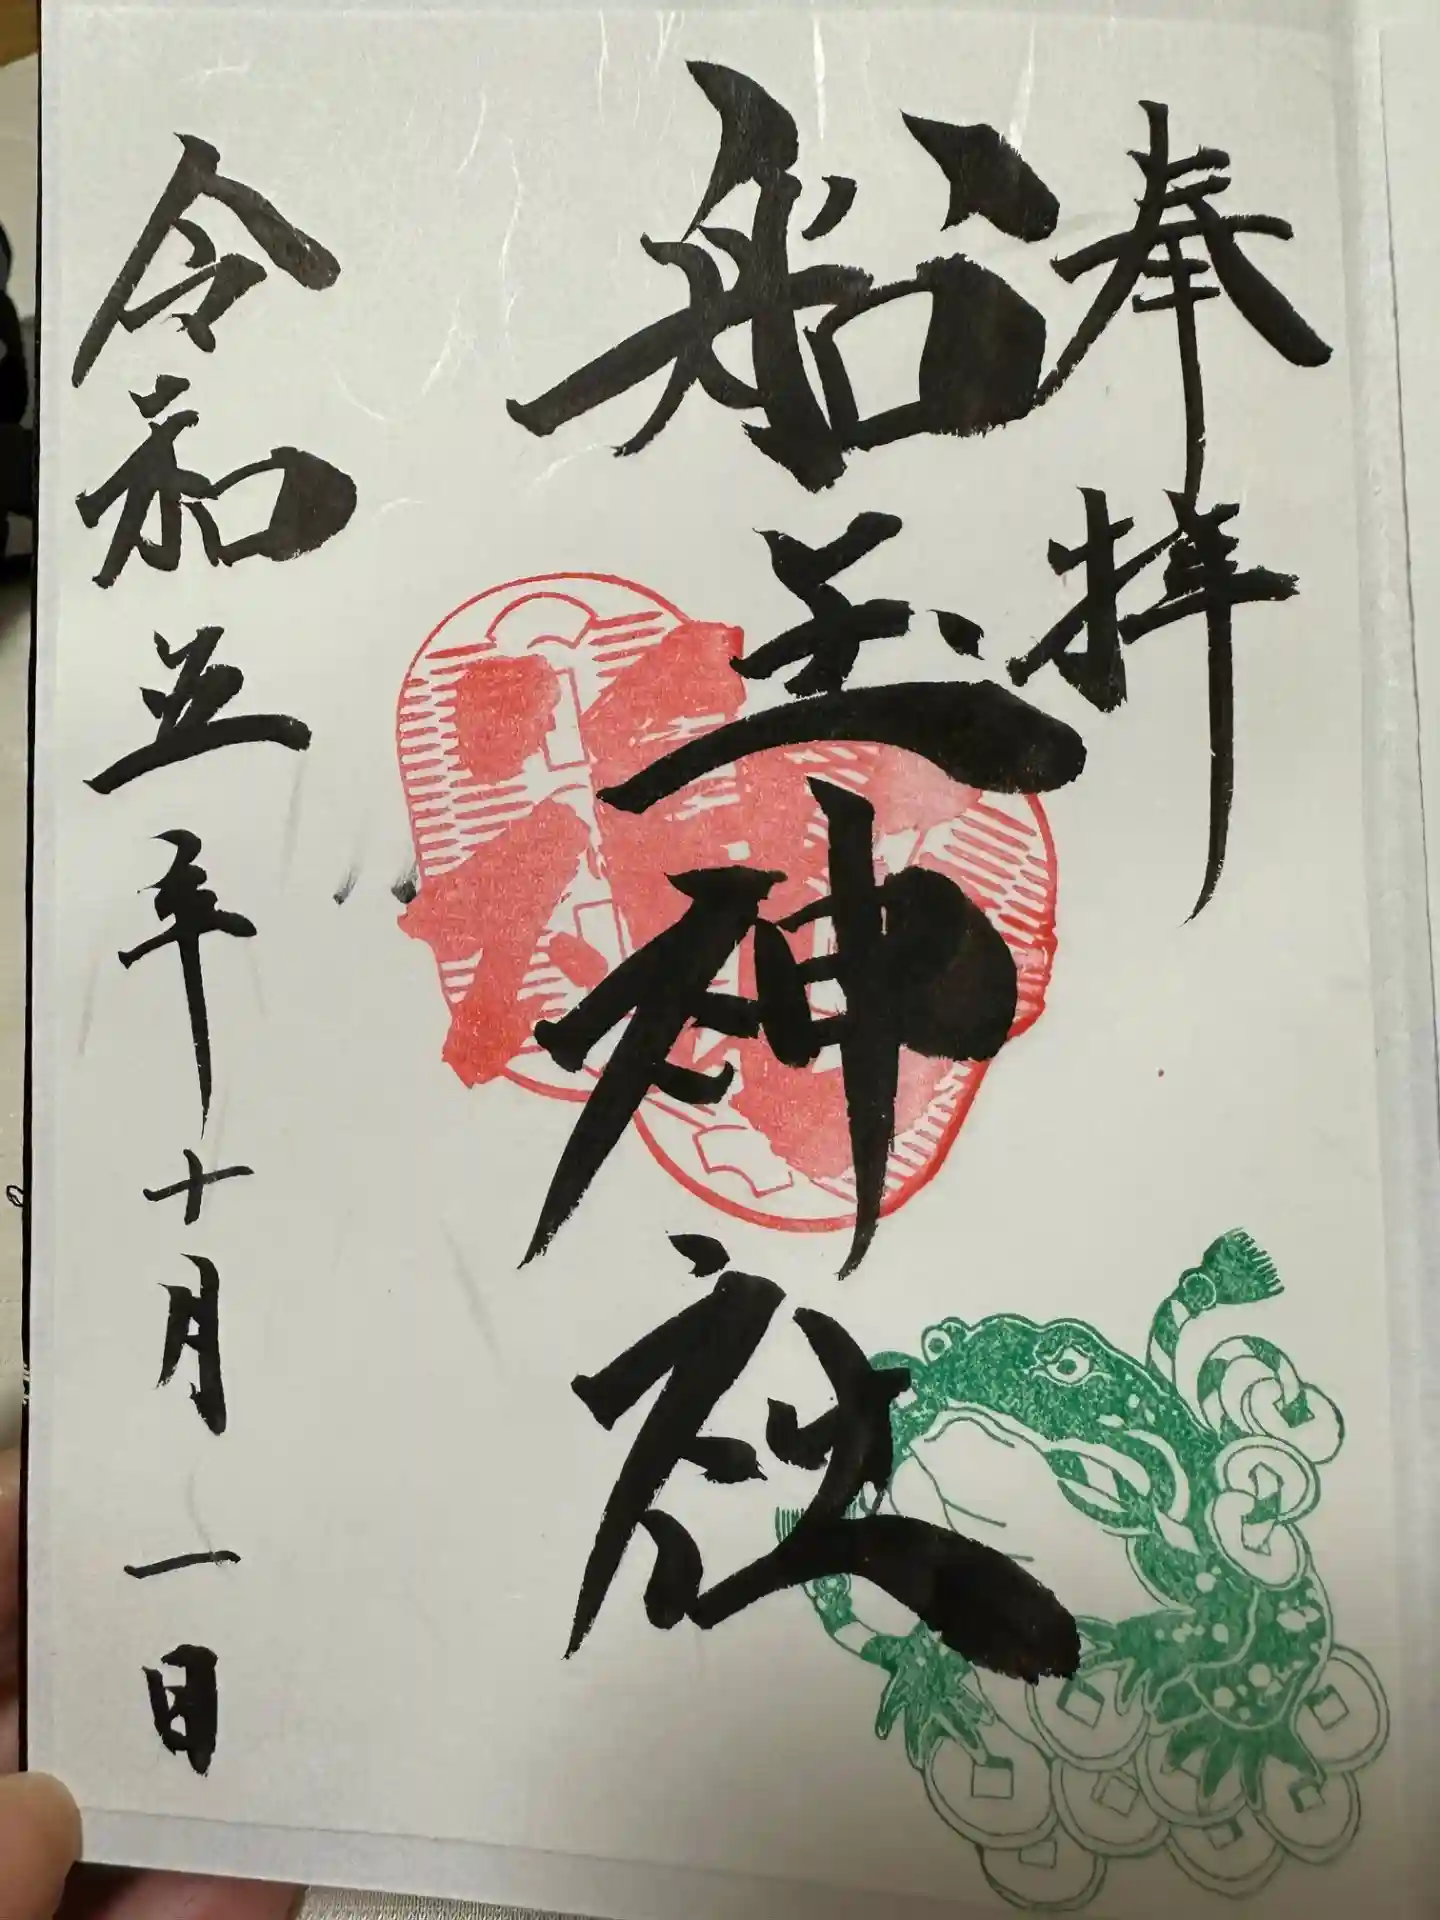 奉拝
船玉神社
令和五年十月一日